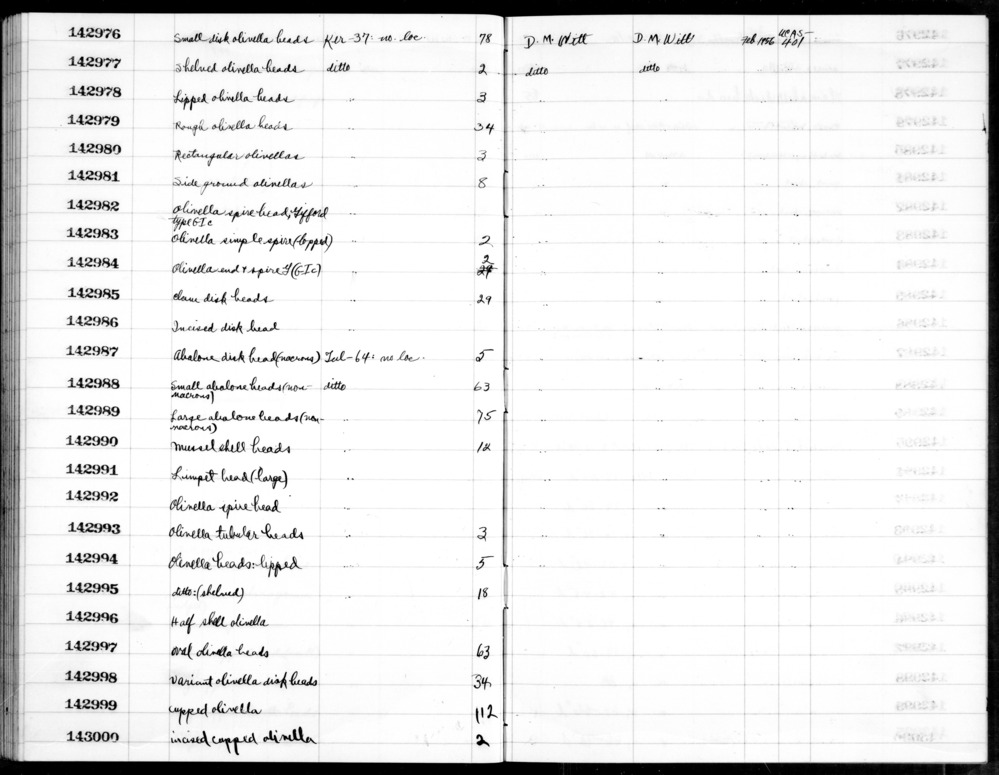 142976 Small disk olivella beads Ker-37: no. loc. 78 D. M. Witt D. M. Witt Feb 1956 UCAS-401
142977 Shelved olivella beads ditto 2 ditto ditto " "
142978 Lipped olivella beads " 3 " " " "
142979 Rough olivella beads " 34 " " " "
142980 Rectangular olivellas " 3 " " " "
142981 Side ground olivellas " 8 " " " "
142982 Olivella spire bead; Gifford " " " " "
type G1c
142983 Olivella simple spire (lopped) " 2 " " " "
2
142984 Olivella end & spire (G1c) " " " " "
142985 Clam disk beads " 29 " " " "
142986 Incised disk bead " " " " "
142987 Abalone disk bead (nacrous) Tul-64: no loc. 5 " " " "
142988 Small abalone beads (non- ditto 63 " " " "
nacrous)
142989 Large abalone beads (non- " 75 " " " "
nacrous)
142990 Mussel shell beads " 12 " " " "
142991 Limpet bead (large) " " " " "
142992 Olivella spire bead " " " "
142993 Olivella tubular beads " 3 " " " "
142994 Olivella beads: lipped " 5 " " " "
142995 ditto: (shelved) " 18
142996 Half shell olivella
142997 oval olivella beads 63
142998 variant olivella disk beads 34
142999 cupped olivella 112
143000 incised cupped olivella 2